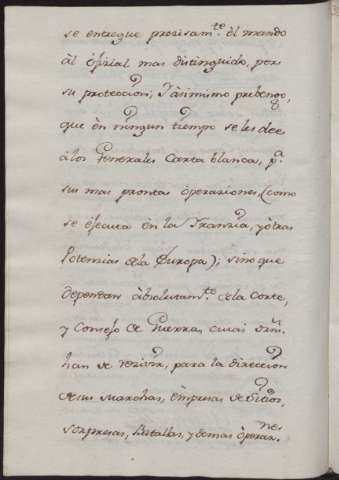 se entregue precisam.te él mando
ál ófizial mas distinguido, por
su proteccion; Yánimismo prebengo,
que én ningun tiempo se les dee
álos Generales Carta blanca, p.a
sus mas prontas óperaziones, (como
se éjecuta én la Franzia, y ótras
Potenzias dela Európa); sino que
dependan ábsolutam.te dela Corte,
y Consejo de Guerra, cuias órns.
han de rezivir, para la direccion
desus Marchas, émpresas, de Sitios,
sorpresas, Batallas, y demas óperaz.nes